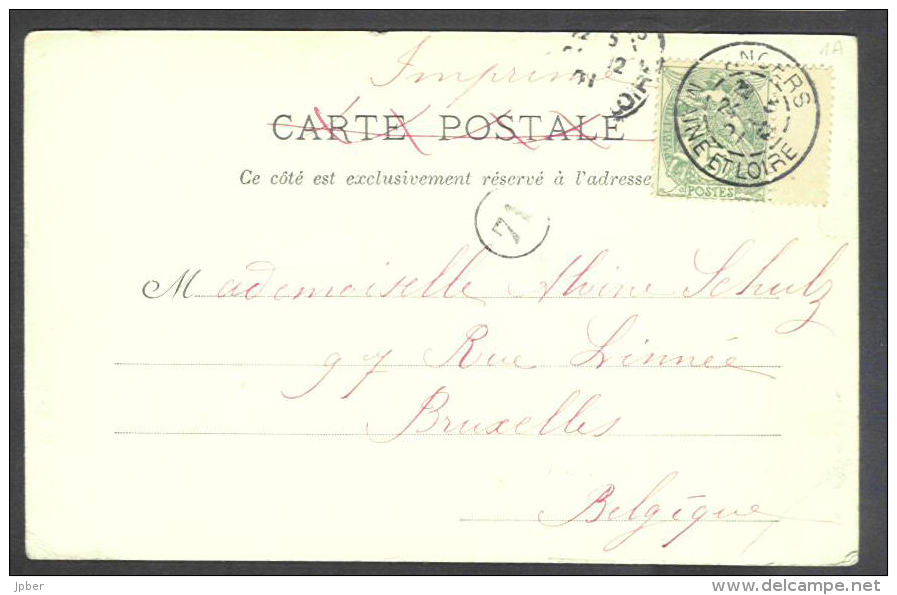 1A
Imprimé
CARTE POSTALE
Ce côté est exclusivement réservé à l'adresse
ANGERS
MAINE ET LOIRE
LOIRE
POSTES
71
Mademoiselle Alvine Schulz
97 Rue Linnée
Bruxelles
Belgique
jpber
www.delcampe.net